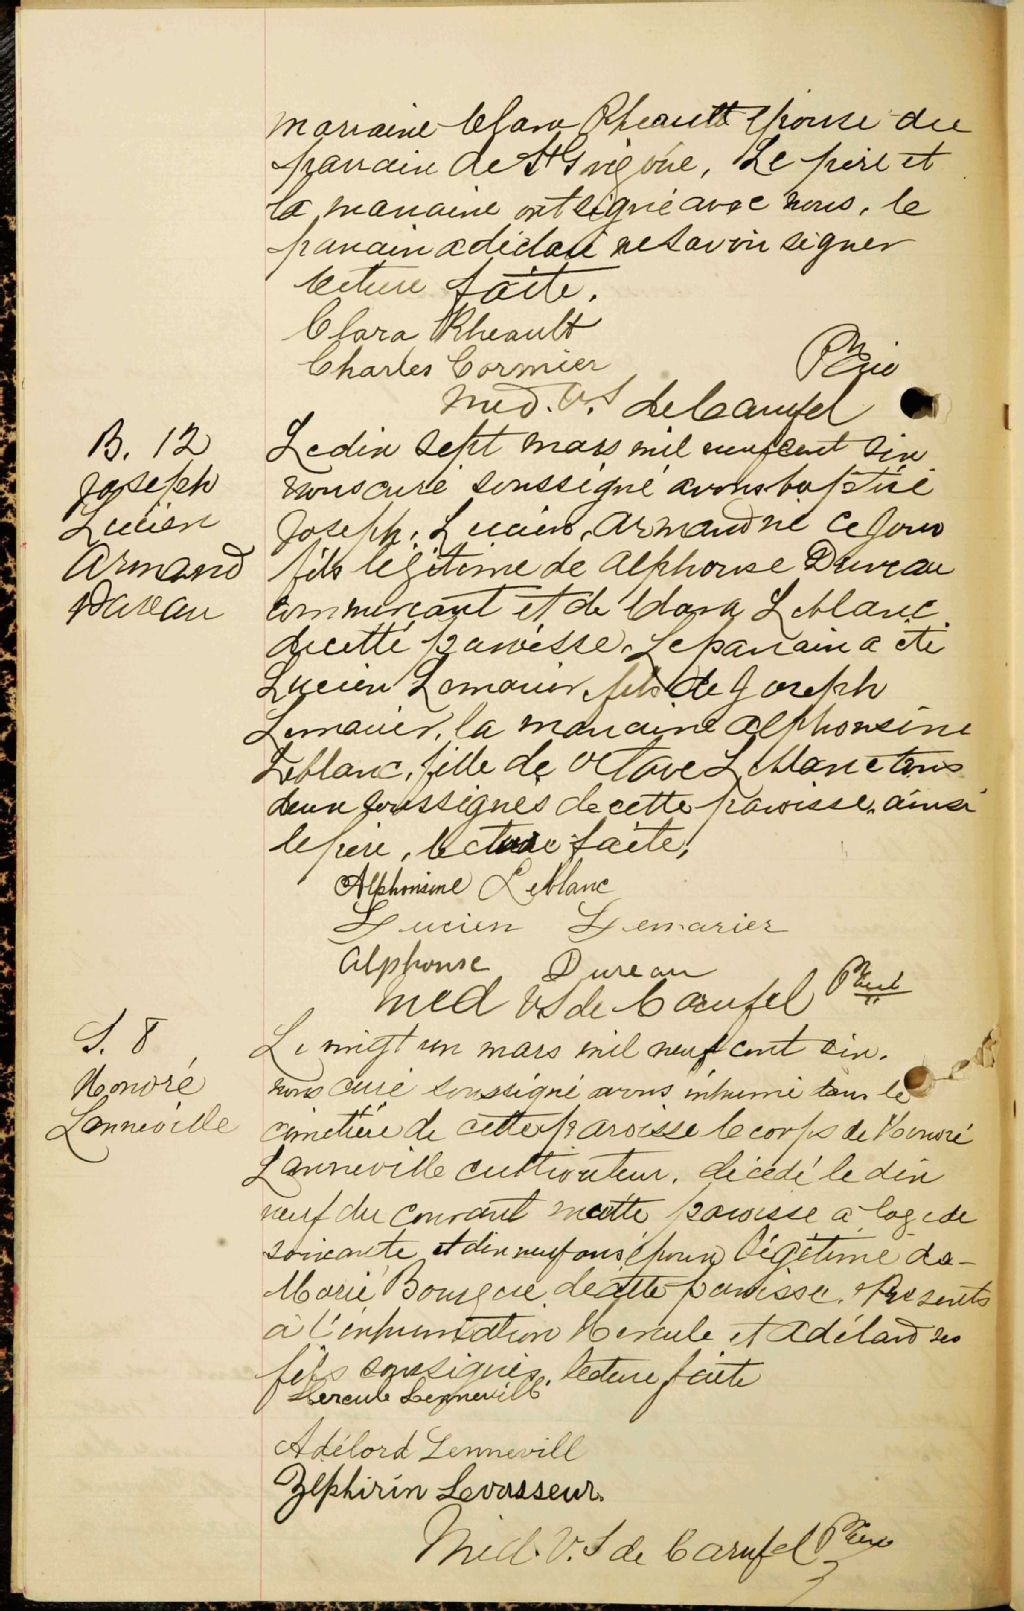 marraine Clara Rheault épouse du
parrain de St Grégoire, Le père et
la marraine ont signé avec nous, le
parrain a déclaré ne savoir signer
lecture faite.
Clara Rheault
Charles Cormier
Ptre Curé
Med. V. S de Carufel
B. 12
Joseph
Lucien
Armand
Le dix sept mars mil neuf cent six
nous curé soussigné avons baptisé
Joseph, Lucien, Armand né ce jour
fils légitime de Alphonse Dureau
commerçant et de Clara Leblanc
de cette paroisse. Le parrain a été
Lucien Lemarier, fils de Joseph
Lemarier, la marraine Alphonsine
Leblanc, fille de Octave Leblanc tous
deux soussignés de cette paroisse, ainsi
le père, lecture faite,
Alphonsine Leblanc
Lucien Lemarier
Alphonse Dureau
Med V. S de Carufel Ptre Curé
S. 8
Honoré
Lanneville
Le vingt un mars mil neuf cent six.
nous curé soussigné avons inhumé dans le
cimetière de cette paroisse le corps de Honoré
Lanneville cultivateur, décédé le dix
neuf du courant en cette paroisse à l'age de
soixante et dix neuf ans époux légitime de
Marie Bourque de cette paroisse. Présents
à l'inhumation Hercule et Adélard ses
fils soussignés, lecture faite
Hercule Lennevill
Adélord Lennevill
Zéphirin Levasseur.
Med. V. S de Carufel Ptre Curé